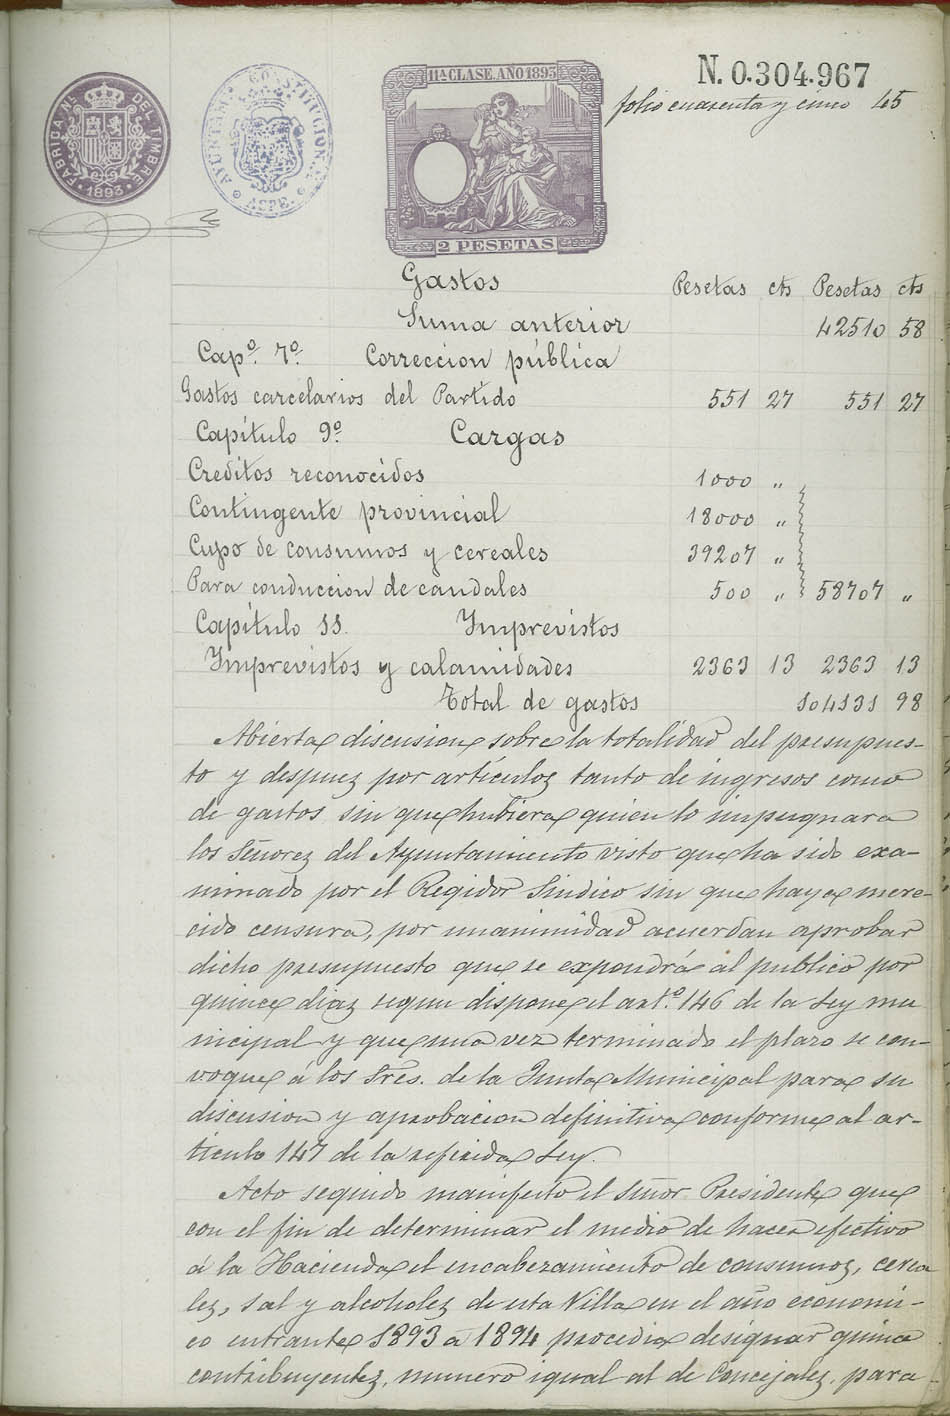 N. 0.304.967
folio cuarenta y cinco 45
FABRICA Nal DEL TIMBRE
1893
AYUNTAMto CONSTITUCIONAL
ASPE
11ª CLASE. AÑO 1893
2 PESETAS
Gastos Pesetas cts Pesetas cts
Suma anterior 42510 58
Capº. 7º. Correccion pública
Gastos carcelarios del Partido 551 27 551 27
Capítulo 9º. Cargas
Creditos reconocidos 1000 "
Contingente provincial 18000 "
Cupo de consumos y cereales 39207 "
Para conduccion de caudales 500 " 58707 "
Capítulo 11. Imprevistos
Imprevistos y calamidades 2363 13 2363 13
Total de gastos 104131 98
Abierta discusion sobre la totalidad del presupues-
to y despuez por artículoz tanto de ingresos como
de gastos sin que hubiera quien lo impugnara
los Señorez del Ayuntamiento visto que ha sido exa-
minado por el Regidor Sindico sin que haya mere-
cido censura, por unanimidad acuerdan aprobar
dicho presupuesto que se expondrá al publico por
quince diaz segun dispone el artº. 146 de la Ley mu
nicipal y que una vez terminado el plazo se con-
voque á los Sres. de la Junta Municipal para su
discusion y aprobacion definitiva conforme al ar-
tículo 147 de la referida Ley.
Acto seguido manifesto el Señor Presidente que
con el fin de determinar el medio de hacer efectivo
á la Hacienda el encabezamiento de consumoz, cerea
lez, sal y alcoholez de esta Villa en el año económi-
co entrante 1893 a 1894 procedia designar quince
contribuyentez, numero igual al de Concejalez, para